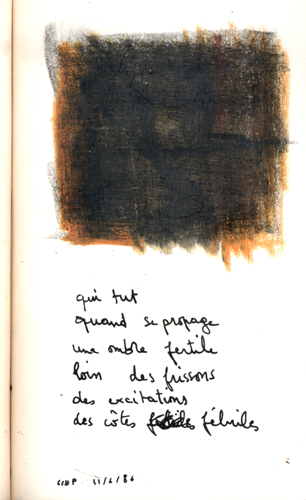 qui tut
quand se propage
une ombre fertile
loin des frissons
des excitations
des côtes fébriles